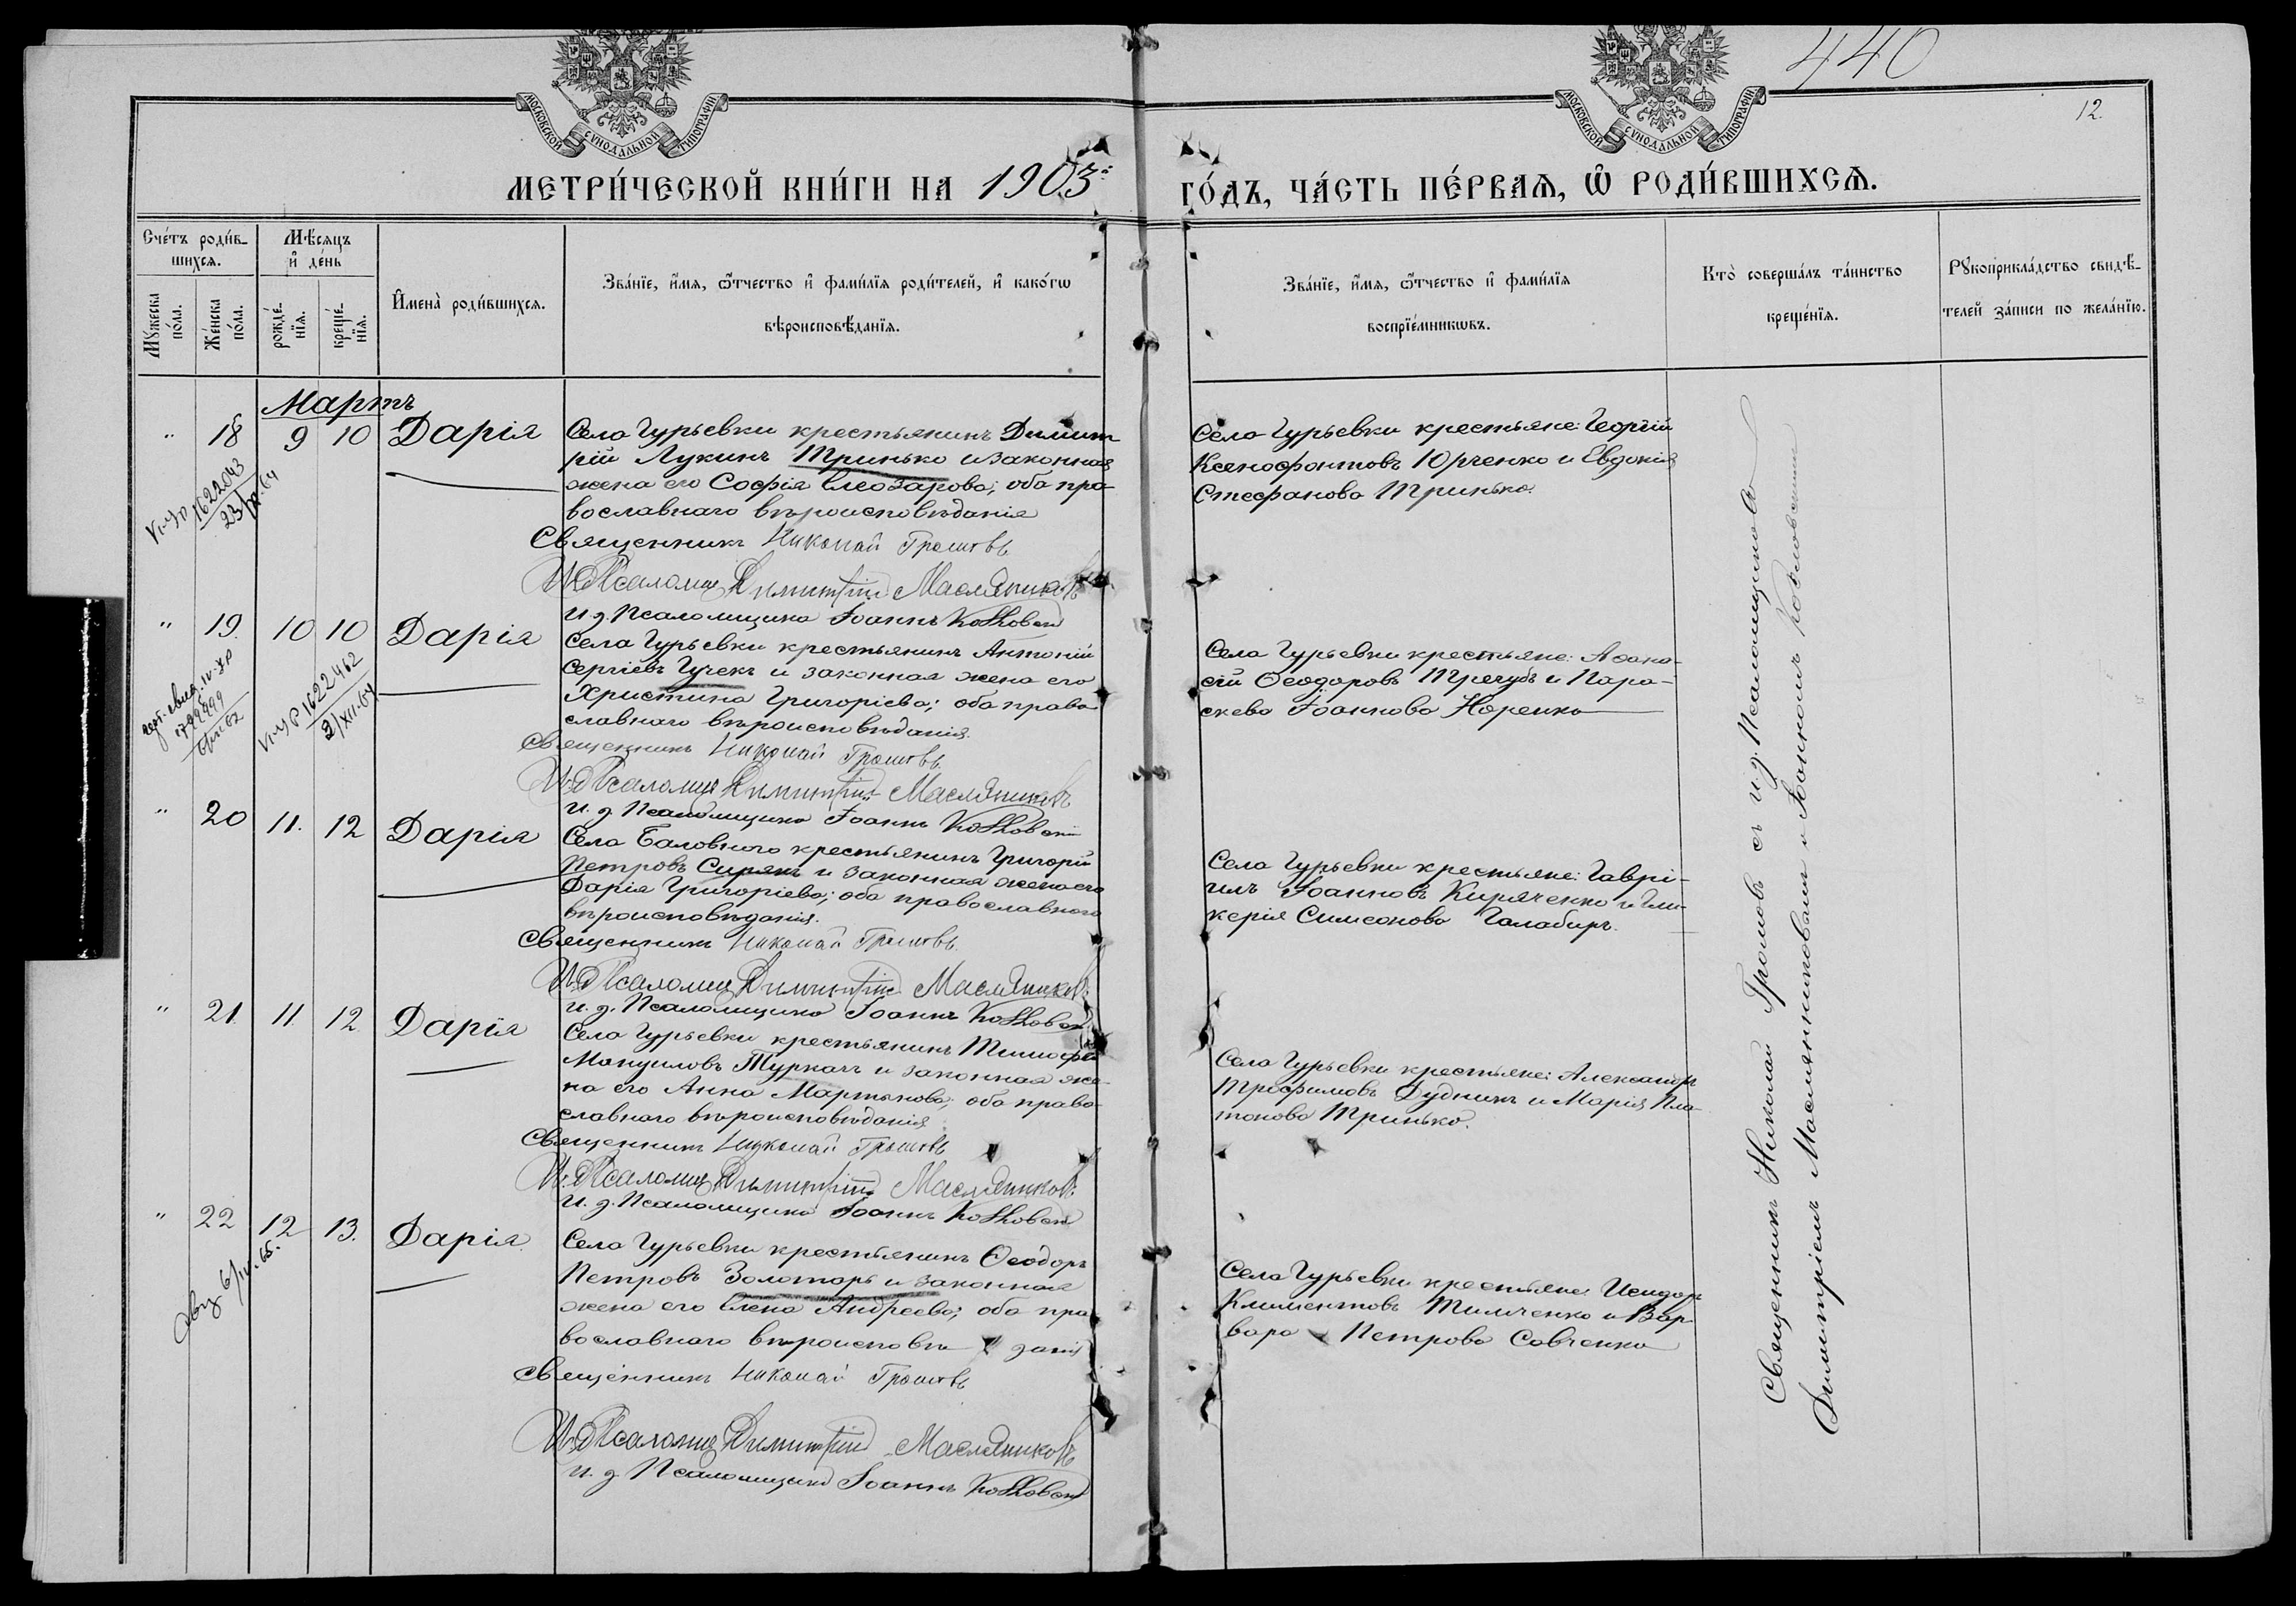 440
12.
МОСКОВСКОЙ СѴНОДАЛЬНОЙ ТИПОГРАФІИ
МОСКОВСКОЙ СѴНОДАЛЬНОЙ ТИПОГРАФІИ
МЕТРИ́ЧЕСКОЙ КНИ́ГИ НА 1903й ГО́ДЪ, ЧА́СТЬ ПЕ́РВАѦ, Ѽ РОДИ́ВШИХСѦ.
Сче́тъ роди́в-
шихсѧ.
Мꙋ́жеска
по́ла.
Же́нска
по́ла.
Мѣ́сѧцъ
и҆ де́нь
рожде́-
нїѧ.
креще́-
нїѧ.
И҆мена̀ роди́вшихсѧ.
Зва́нїе, и҆́мѧ, ѻ҆́тчество и҆ фами́лїѧ роди́телей, и҆ како́гѡ
вѣроисповѣ́данїѧ.
Зва́нїе, и҆́мѧ, ѻ҆́тчество и҆ фами́лїѧ
воспрїе́мникѡвъ.
Кто̀ соверша́лъ та́инство
креще́нїѧ.
Рꙋкоприкла́дство свидѣ́-
телей за́писи по жела́нїю.
Мартъ
" 18 9 10 Дарія
Села Гурьевки крестьянинъ Димит
рій Лукинъ Тринько и законная
жена его Софія Елеозарова; оба пра-
вославнаго вѣроисповѣданія
Священникъ Николай Громовъ
И.д. Псаломщ. Димитрій Маслянниковъ
И.д. Псаломщика Іоаннъ
Села Гурьевки крестьяне: Георгій
Ксенофонтовъ Юрченко и Евдокія
Стефанова Тринько.
1622043
23/XII-64
" 19. 10 10 Дарія
Села Гурьевки крестьянинъ Антоній
Сергіевъ Гучекъ и законная жена его
Христина Григоріева; оба право
славнаго вѣроисповѣданія.
Священникъ Николай Громовъ.
И.д. Псаломщ. Димитрій Маслянниковъ
И.д. Псаломщика Іоаннъ
Села Гурьевки крестьяне: Аѳана-
сій Ѳеодоровъ Тригубъ и Пара-
скева Іоаннова Норенко
1622462
2/XII-64
" 20 11. 12 Дарія
Села Баловного крестьянинъ Григорій
Петровъ Сирякъ и законная жена его
Дарія Григоріева; оба православного
вѣроисповѣданія.
Священникъ Николай Громовъ.
И.д. Псаломщ. Димитрій Маслянниковъ
И.д. Псаломщика Іоаннъ
Села Гурьевки крестьяне: Гаврі-
илъ Іоанновъ Киряченко и Гли-
керія Симеонова Галабиръ.
" 21. 11. 12 Дарія
Села Гурьевки крестьянинъ Тимофей
Мануиловъ Туркачъ и законная же-
на его Анна Мартынова; оба право-
славнаго вѣроисповѣданія
Священникъ Николай Громовъ
И.д. Псаломщ. Димитрій Маслянниковъ
И.д. Псаломщика Іоаннъ
Села Гурьевки крестьяне: Александръ
Трофимовъ Дудникъ и Марія Пла-
тонова Тринько.
" 22 12 13. Дарія
Села Гурьевки крестьянинъ Ѳеодоръ
Петровъ Золотарь и законная
жена его Елена Андреева; оба пра
вославнаго вѣроисповѣ данія
Священникъ Николай Громовъ
И.д. Псаломщ. Димитрій Маслянниковъ
И.д. Псаломщика Іоаннъ
Села Гурьевки крестьяне: Исидоръ
Климентовъ Тимченко и Вар
вара Петрова Савченко
6/IV.65.
Священникъ Николай Громовъ съ и.д. Псаломщиковъ
Димитріемъ Маслянниковымъ и Іоанномъ